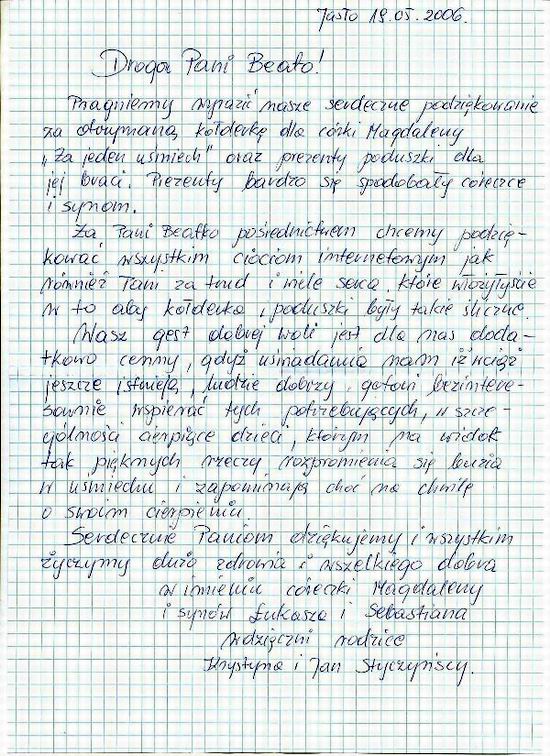 Jasło 19.05.2006.
Droga Pani Beato!
Pragniemy wyrazić nasze serdeczne podziękowanie
za otrzymaną kołderkę dla córki Magdaleny
„Za jeden uśmiech" oraz prezenty poduszki dla
jej braci. Prezenty bardzo się spodobały córeczce
i synom.
Za Pani Beatko pośrednictwem chcemy podzię-
kować wszystkim ciociom internetowym jak
również Pani za trud i wiele serca, które włożyłyście
w to aby kołderka i poduszki były takie śliczne.
Wasz gest dobrej woli jest dla nas doda-
tkowo cenny, gdyż uświadamia nam iż wciąż
jeszcze istnieją ludzie dobrzy, gotowi bezintere-
sownie wspierać tych potrzebujących, w szcze-
gólności cierpiące dzieci, którym na widok
tak pięknych rzeczy rozpromienia się buzia
w uśmiechu i zapominają choć na chwilę
o swoim cierpieniu.
Serdecznie Paniom dziękujemy i wszystkim
życzymy dużo zdrowia i wszelkiego dobra
w imieniu córeczki Magdaleny
i synów Łukasza i Sebastiana
wdzięczni rodzice
Krystyna i Jan Styczyńscy.